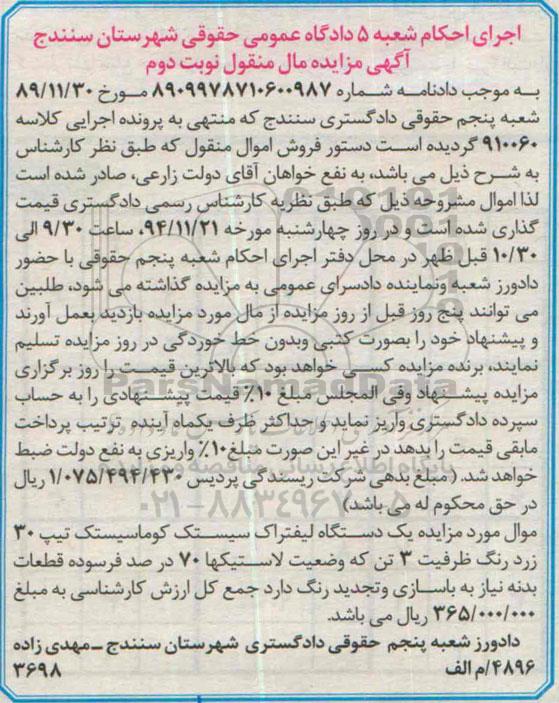 اجرای احکام شعبه ۵ دادگاه عمومی حقوقی شهرستان سنندج
آگهی مزایده مال منقول نوبت دوم
به موجب دادنامه شماره ۸۹۰۹۹۷۸۷۱۰۶۰۰۹۸۷ مورخ ۸۹/۱۱/۳۰
شعبه پنجم حقوقی دادگستری سنندج که منتهی به پرونده اجرایی کلاسه
۹۱۰۰۶۰ گردیده است دستور فروش اموال منقول که طبق نظر کارشناس
به شرح ذیل می باشد، به نفع خواهان آقای دولت زارعی، صادر شده است
لذا اموال مشروحه ذیل که طبق نظریه کارشناس رسمی دادگستری قیمت
گذاری شده است و در روز چهارشنبه مورخه ۹۴/۱۱/۲۱، ساعت ۹/۳۰ الی
۱۰/۳۰ قبل ظهر در محل دفتر اجرای احکام شعبه پنجم حقوقی با حضور
دادورز شعبه ونماینده دادسرای عمومی به مزایده گذاشته می شود، طلبین
می توانند پنج روز قبل از روز مزایده از مال مورد مزایده بازدید بعمل آورند
و پیشنهاد خود را بصورت کتبی وبدون خط خوردگی در روز مزایده تسلیم
نمایند، برنده مزایده کسی خواهد بود که بالاترین قیمت را روز برگزاری
مزایده پیشنهاد وفی المجلس مبلغ ۱۰٪ قیمت پیشنهادی را به حساب
سپرده دادگستری واریز نماید و حداکثر ظرف یکماه آینده ترتیب پرداخت
مابقی قیمت را بدهد در غیر این صورت مبلغ ۱۰٪ واریزی به نفع دولت ضبط
خواهد شد. ( مبلغ بدهی شرکت ریسندگی پردیس ۱/۰۷۵/۴۹۴/۴۳۰ ریال
در حق محکوم له می باشد)
موال مورد مزایده یک دستگاه لیفتراک سیستک کوماسیستک تیپ ۳۰
زرد رنگ ظرفیت ۳ تن که وضعیت لاستیکها ۷۰ در صد فرسوده قطعات
بدنه نیاز به باسازی وتجدید رنگ دارد جمع کل ارزش کارشناسی به مبلغ
۳۶۵/۰۰۰/۰۰۰ ریال می باشد.
دادورز شعبه پنجم حقوقی دادگستری شهرستان سنندج - مهدی زاده
۴۸۹۶/م الف ۳۶۹۸
ParsNamadData
پایگاه اطلاع رسانی مناقصه و مزایده
۰۲۱-۸۸۳۴۹۶۷۰